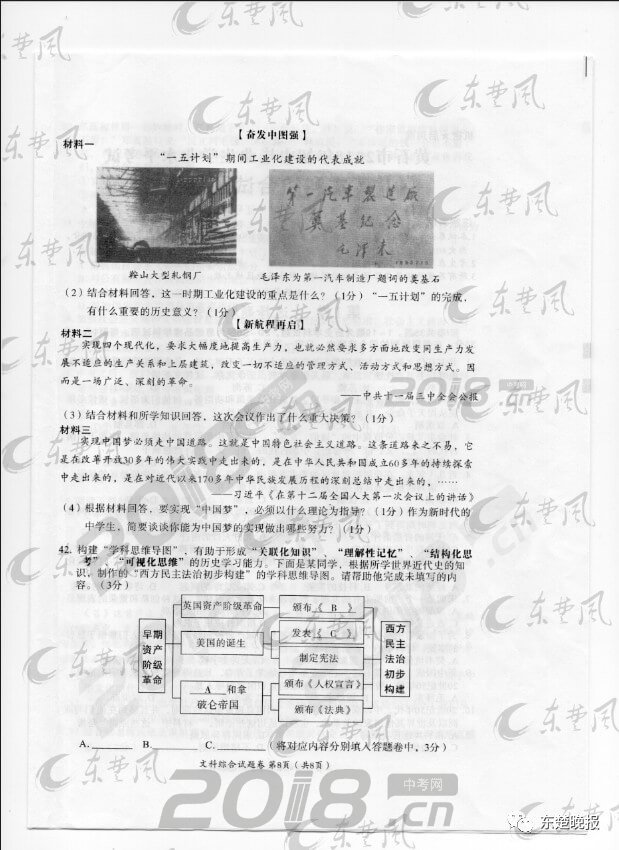 【奋发中图强】
材料一
“一五计划”期间工业化建设的代表成就
第一汽车制造厂
奠基纪念
毛泽东
鞍山大型轧钢厂
毛泽东为第一汽车制造厂题词的奠基石
（2）结合材料回答，这一时期工业化建设的重点是什么？（1分）“一五计划”的完成，
有什么重要的历史意义？（1分）
【新航程再启】
材料二
实现四个现代化，要求大幅度地提高生产力，也就必然要求多方面地改变同生产力发
展不适应的生产关系和上层建筑，改变一切不适应的管理方式、活动方式和思想方式。因
而是一场广泛、深刻的革命。
——中共十一届三中全会公报
（3）结合材料和所学知识回答，这次会议作出了什么重大决策？（1分）
材料三
实现中国梦必须走中国道路。这就是中国特色社会主义道路。这条道路来之不易，它
是在改革开放30多年的伟大实践中走出来的，是在中华人民共和国成立60多年的持续探索
中走出来的，是在对近代以来170多年中华民族发展历程的深刻总结中走出来的，……
——习近平《在第十二届全国人大第一次会议上的讲话》
（4）根据材料回答，要实现“中国梦”，必须以什么理论为指导？（1分）作为新时代的
中学生，简要谈谈你能为中国梦的实现做出哪些努力？（1分）
42. 构建“学科思维导图”，有助于形成“关联化知识”、“理解性记忆”、“结构化思
考”、“可视化思维”的历史学习能力。下面是某同学，根据所学世界近代史的知
识，制作的“西方民主法治初步构建”的学科思维导图。请帮助他完成未填写的内
容。（3分）
早期资产阶级革命
英国资产阶级革命
颁布《 B 》
美国的诞生
发表《 C 》
制定宪法
A 和拿破仑帝国
颁布《人权宣言》
颁布《法典》
西方民主法治初步构建
A.________ B.________ C.________（将对应内容分别填入答题卷中，3分）
文科综合试题卷 第8页（共8页）
东楚风
中考网
2018.cn
东楚晚报